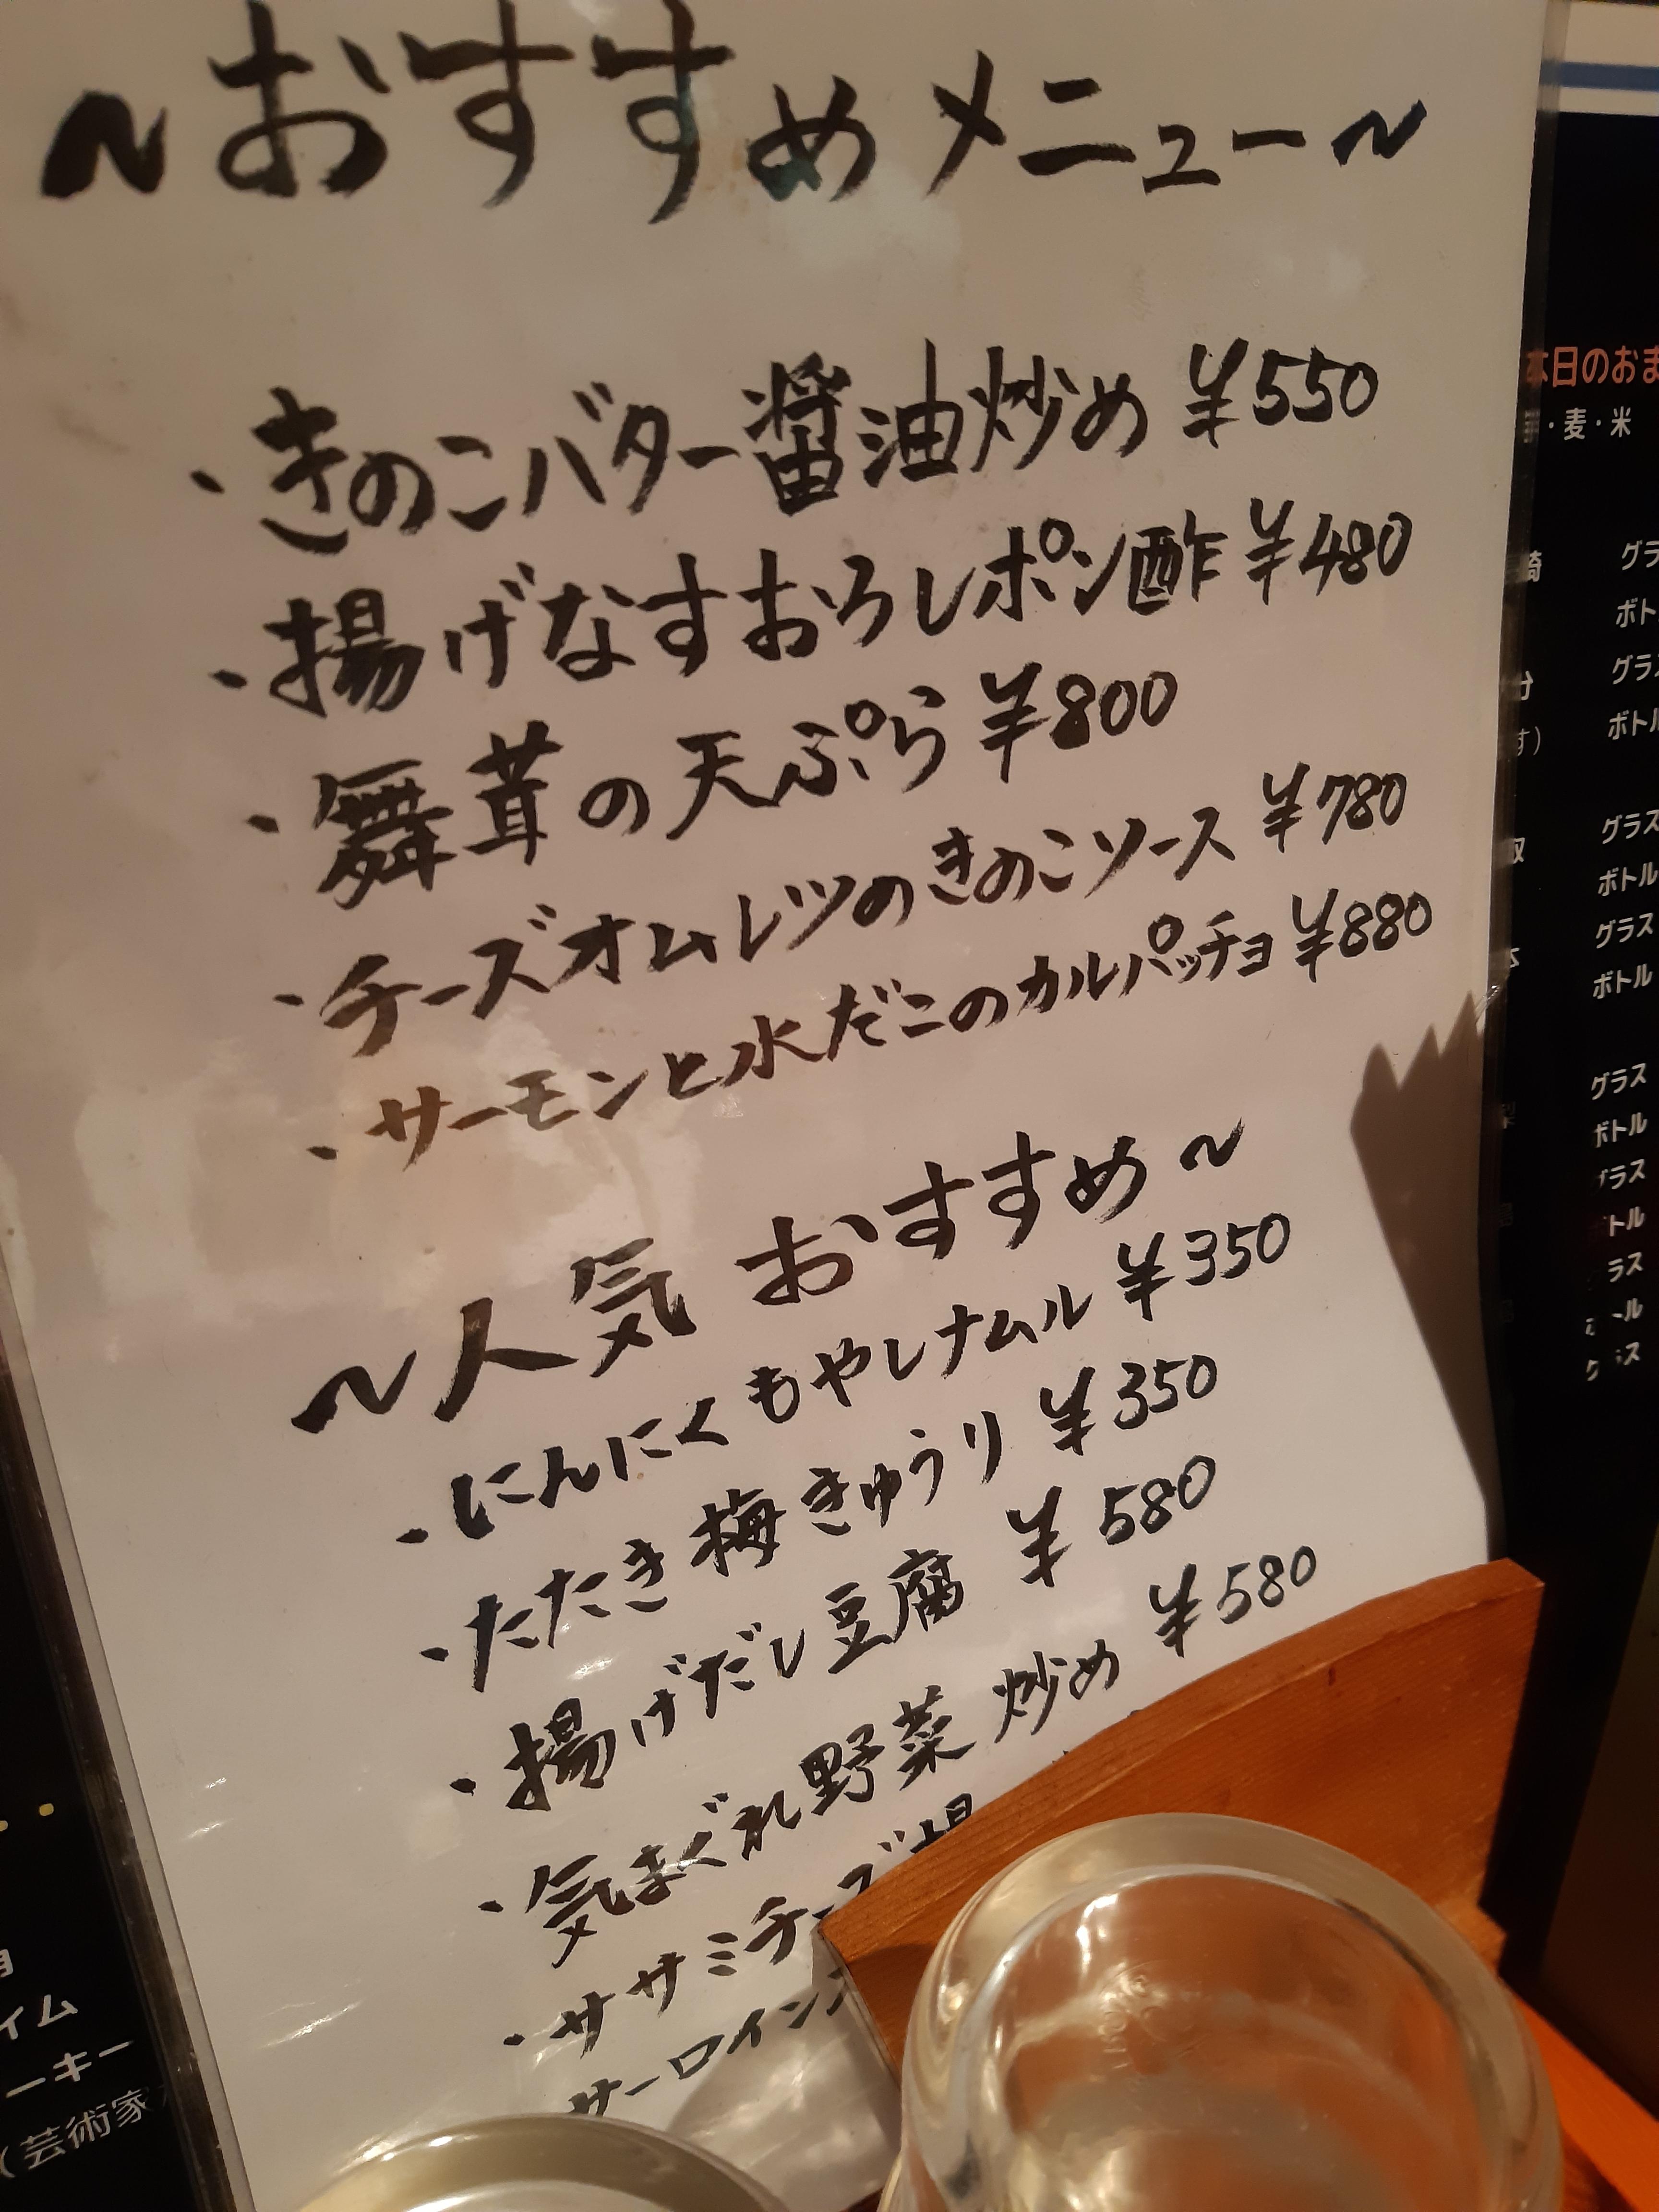 ~おすすめメニュー~
・きのこバター醤油炒め ¥550
・揚げなすおろしポン酢 ¥480
・舞茸の天ぷら ¥800
・チーズオムレツのきのこソース ¥780
・サーモンと水だこのカルパッチョ ¥880
~人気 おすすめ~
・にんにくもやしナムル ¥350
・たたき梅きゅうり ¥350
・揚げだし豆腐 ¥580
・気まぐれ野菜炒め ¥580
・ササミチーズ揚
サーロイン
本日のおま
・麦・米
グラ
ボト
グラ
ボトル
す)
グラス
ボトル
グラス
ボトル
グラス
ボトル
グラス
トル
ラス
ール
イム
ーキー
(芸術家